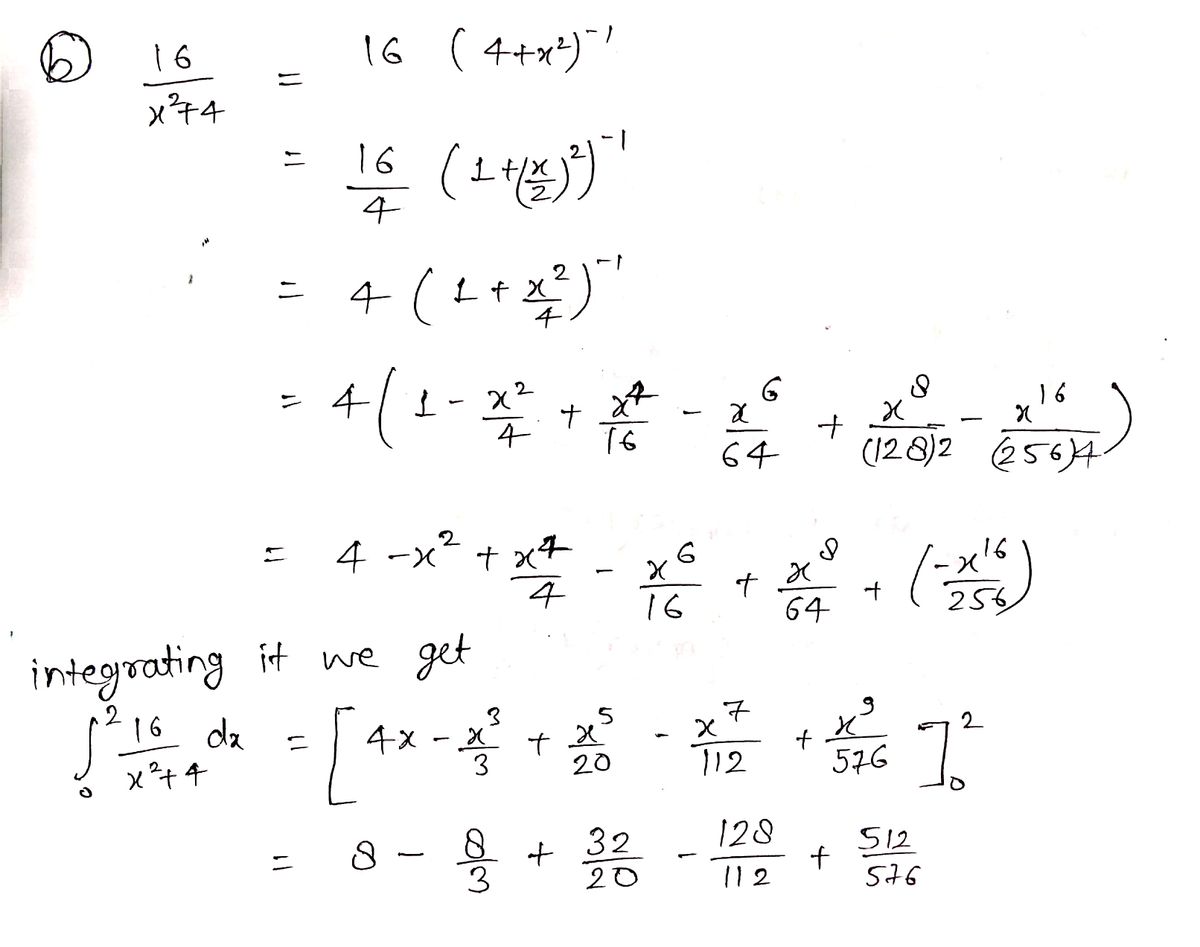 ⓑ 16/(x²+4) = 16 (4+x²)⁻¹
= 16/4 (1+(x/2)²)⁻¹
= 4 (1 + x²/4)⁻¹
= 4(1 - x²/4 + x⁴/16 - x⁶/64 + x⁸/(128)2 - x¹⁶/(256)4)
= 4 - x² + x⁴/4 - x⁶/16 + x⁸/64 + (-x¹⁶/256)
integrating it we get
∫₀² 16/(x²+4) dx = [4x - x³/3 + x⁵/20 - x⁷/112 + x⁹/576]₀²
= 8 - 8/3 + 32/20 - 128/112 + 512/576